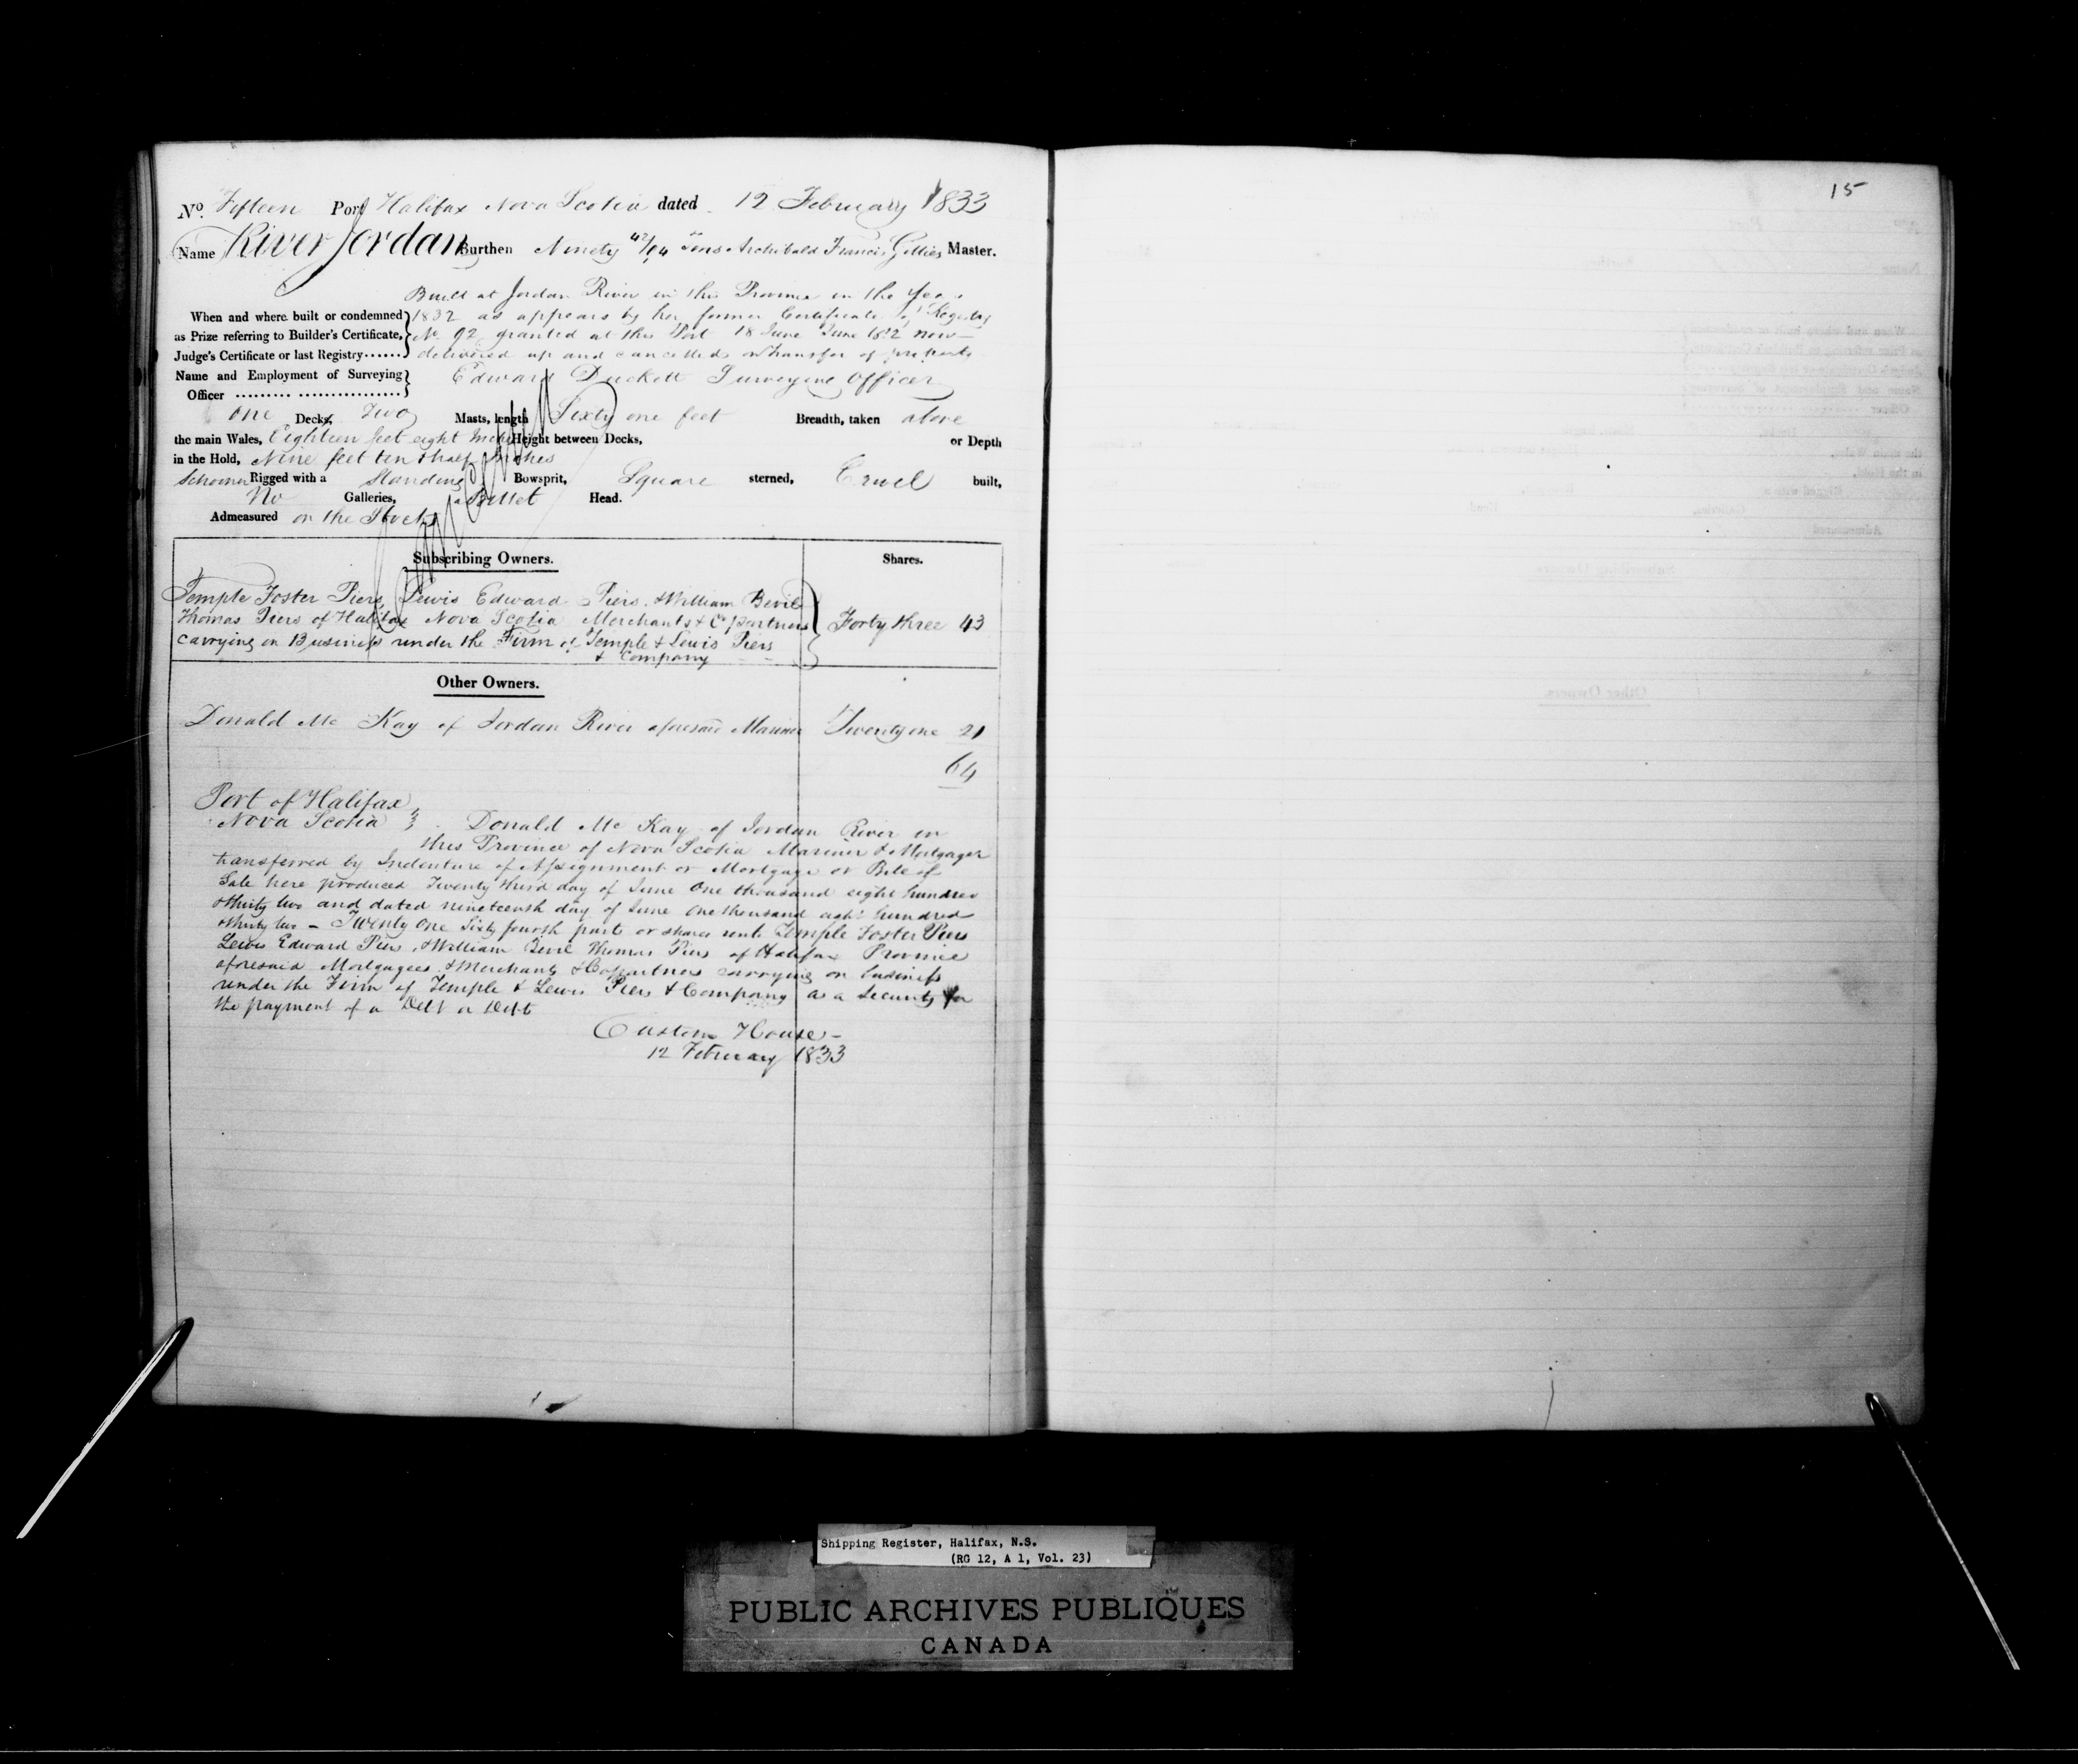 No. Fifteen Port Halifax Nova Scotia dated 12 February 1833
Name River Jordan Burthen Ninety 42/94 Tons Archibald Francis Gillies Master.
Built at Jordan River in this Province in the Year
When and where built or condemned 1832 as appears by her former Certificate of Registry
as Prize referring to Builder's Certificate, No. 92 granted at this Port 18 June June 1832 now
Judge's Certificate or last Registry...... delivered up and cancelled on transfer of property
Name and Employment of Surveying Edward Duckett Surveying Officer
Officer ......... .................
One Decks, Two Masts, length Sixty one feet Breadth, taken above
the main Wales, Eighteen feet eight Inches Height between Decks, or Depth
in the Hold, Nine feet ten & half Inches
Schooner Rigged with a Standing Bowsprit, Square sterned, Carvel built,
No Galleries, a Billet Head.
Admeasured on the Stocks
Subscribing Owners. Shares.
Temple Foster Piers, Lewis Edward Piers, & William Bevil
Thomas Piers of Halifax Nova Scotia Merchants & Co partners Forty three 43
carrying on Business under the Firm of Temple & Lewis Piers
& Company
Other Owners.
Donald Mc Kay of Jordan River aforesaid Mariner Twenty one 21
64
Port of Halifax
Nova Scotia Donald Mc Kay of Jordan River in
this Province of Nova Scotia Mariner & Mortgager
transferred by Indenture of Assignment or Mortgage or Bile of
Sale here produced Twenty third day of June One thousand eight hundred
& thirty two and dated nineteenth day of June One thousand eight hundred
& thirty two - Twenty One Sixty fourth parts or shares unto Temple Foster Piers
Lewis Edward Piers, & William Bevil Thomas Piers of Halifax Province
aforesaid Mortgagees & Merchants & Copartners carrying on business
under the Firm of Temple & Lewis Piers & Company as a Security for
the payment of a Debt or Debts
Custom House -
12 February 1833
15
Shipping Register, Halifax, N.S.
(RG 12, A 1, Vol. 23)
PUBLIC ARCHIVES PUBLIQUES
CANADA